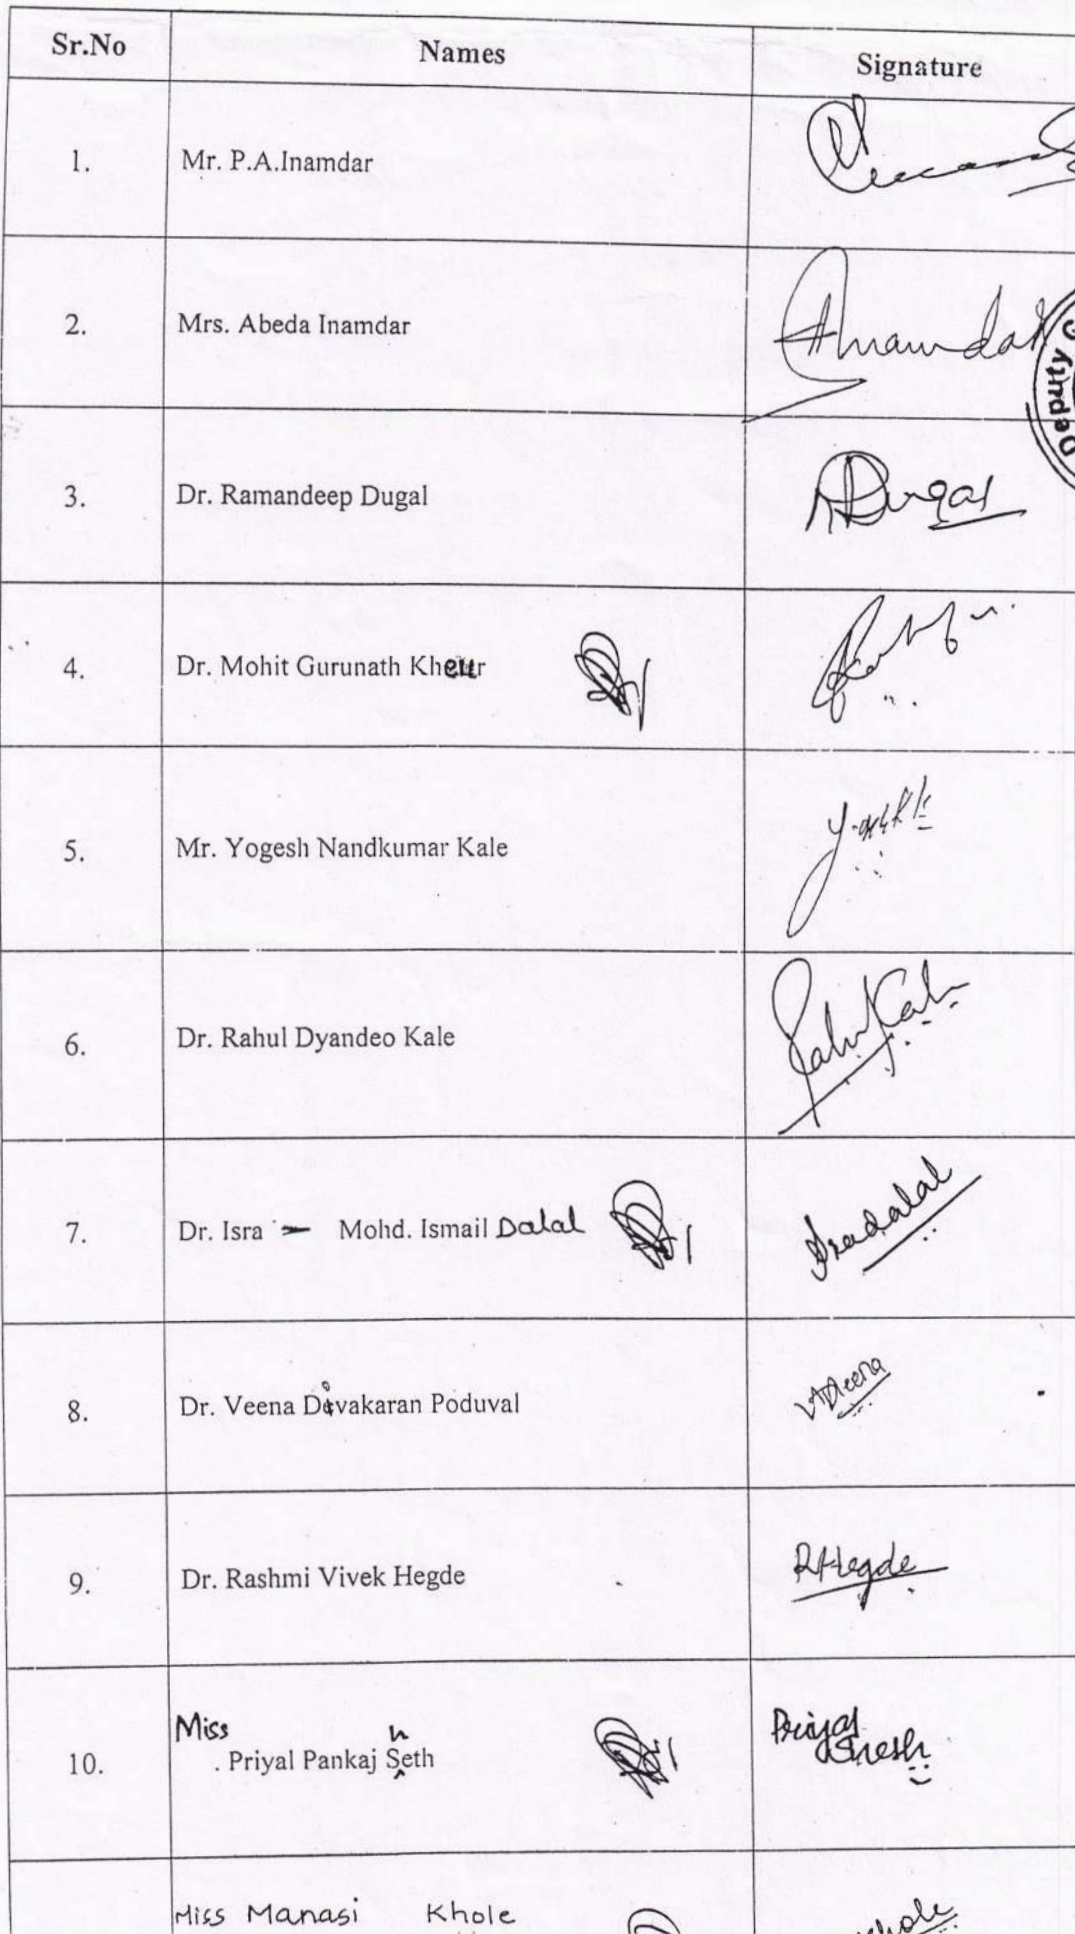 Sr.No Names Signature
1. Mr. P.A.Inamdar
2. Mrs. Abeda Inamdar Inamdar
Deputy
3. Dr. Ramandeep Dugal Dugal
4. Dr. Mohit Gurunath Kheur
5. Mr. Yogesh Nandkumar Kale
6. Dr. Rahul Dyandeo Kale Rahul Kale
7. Dr. Isra - Mohd. Ismail Dalal Isradalal
8. Dr. Veena Divakaran Poduval Veena
9. Dr. Rashmi Vivek Hegde RHegde
Miss h
10. . Priyal Pankaj Seth Priyal Sheth
Miss Manasi Khole Khole